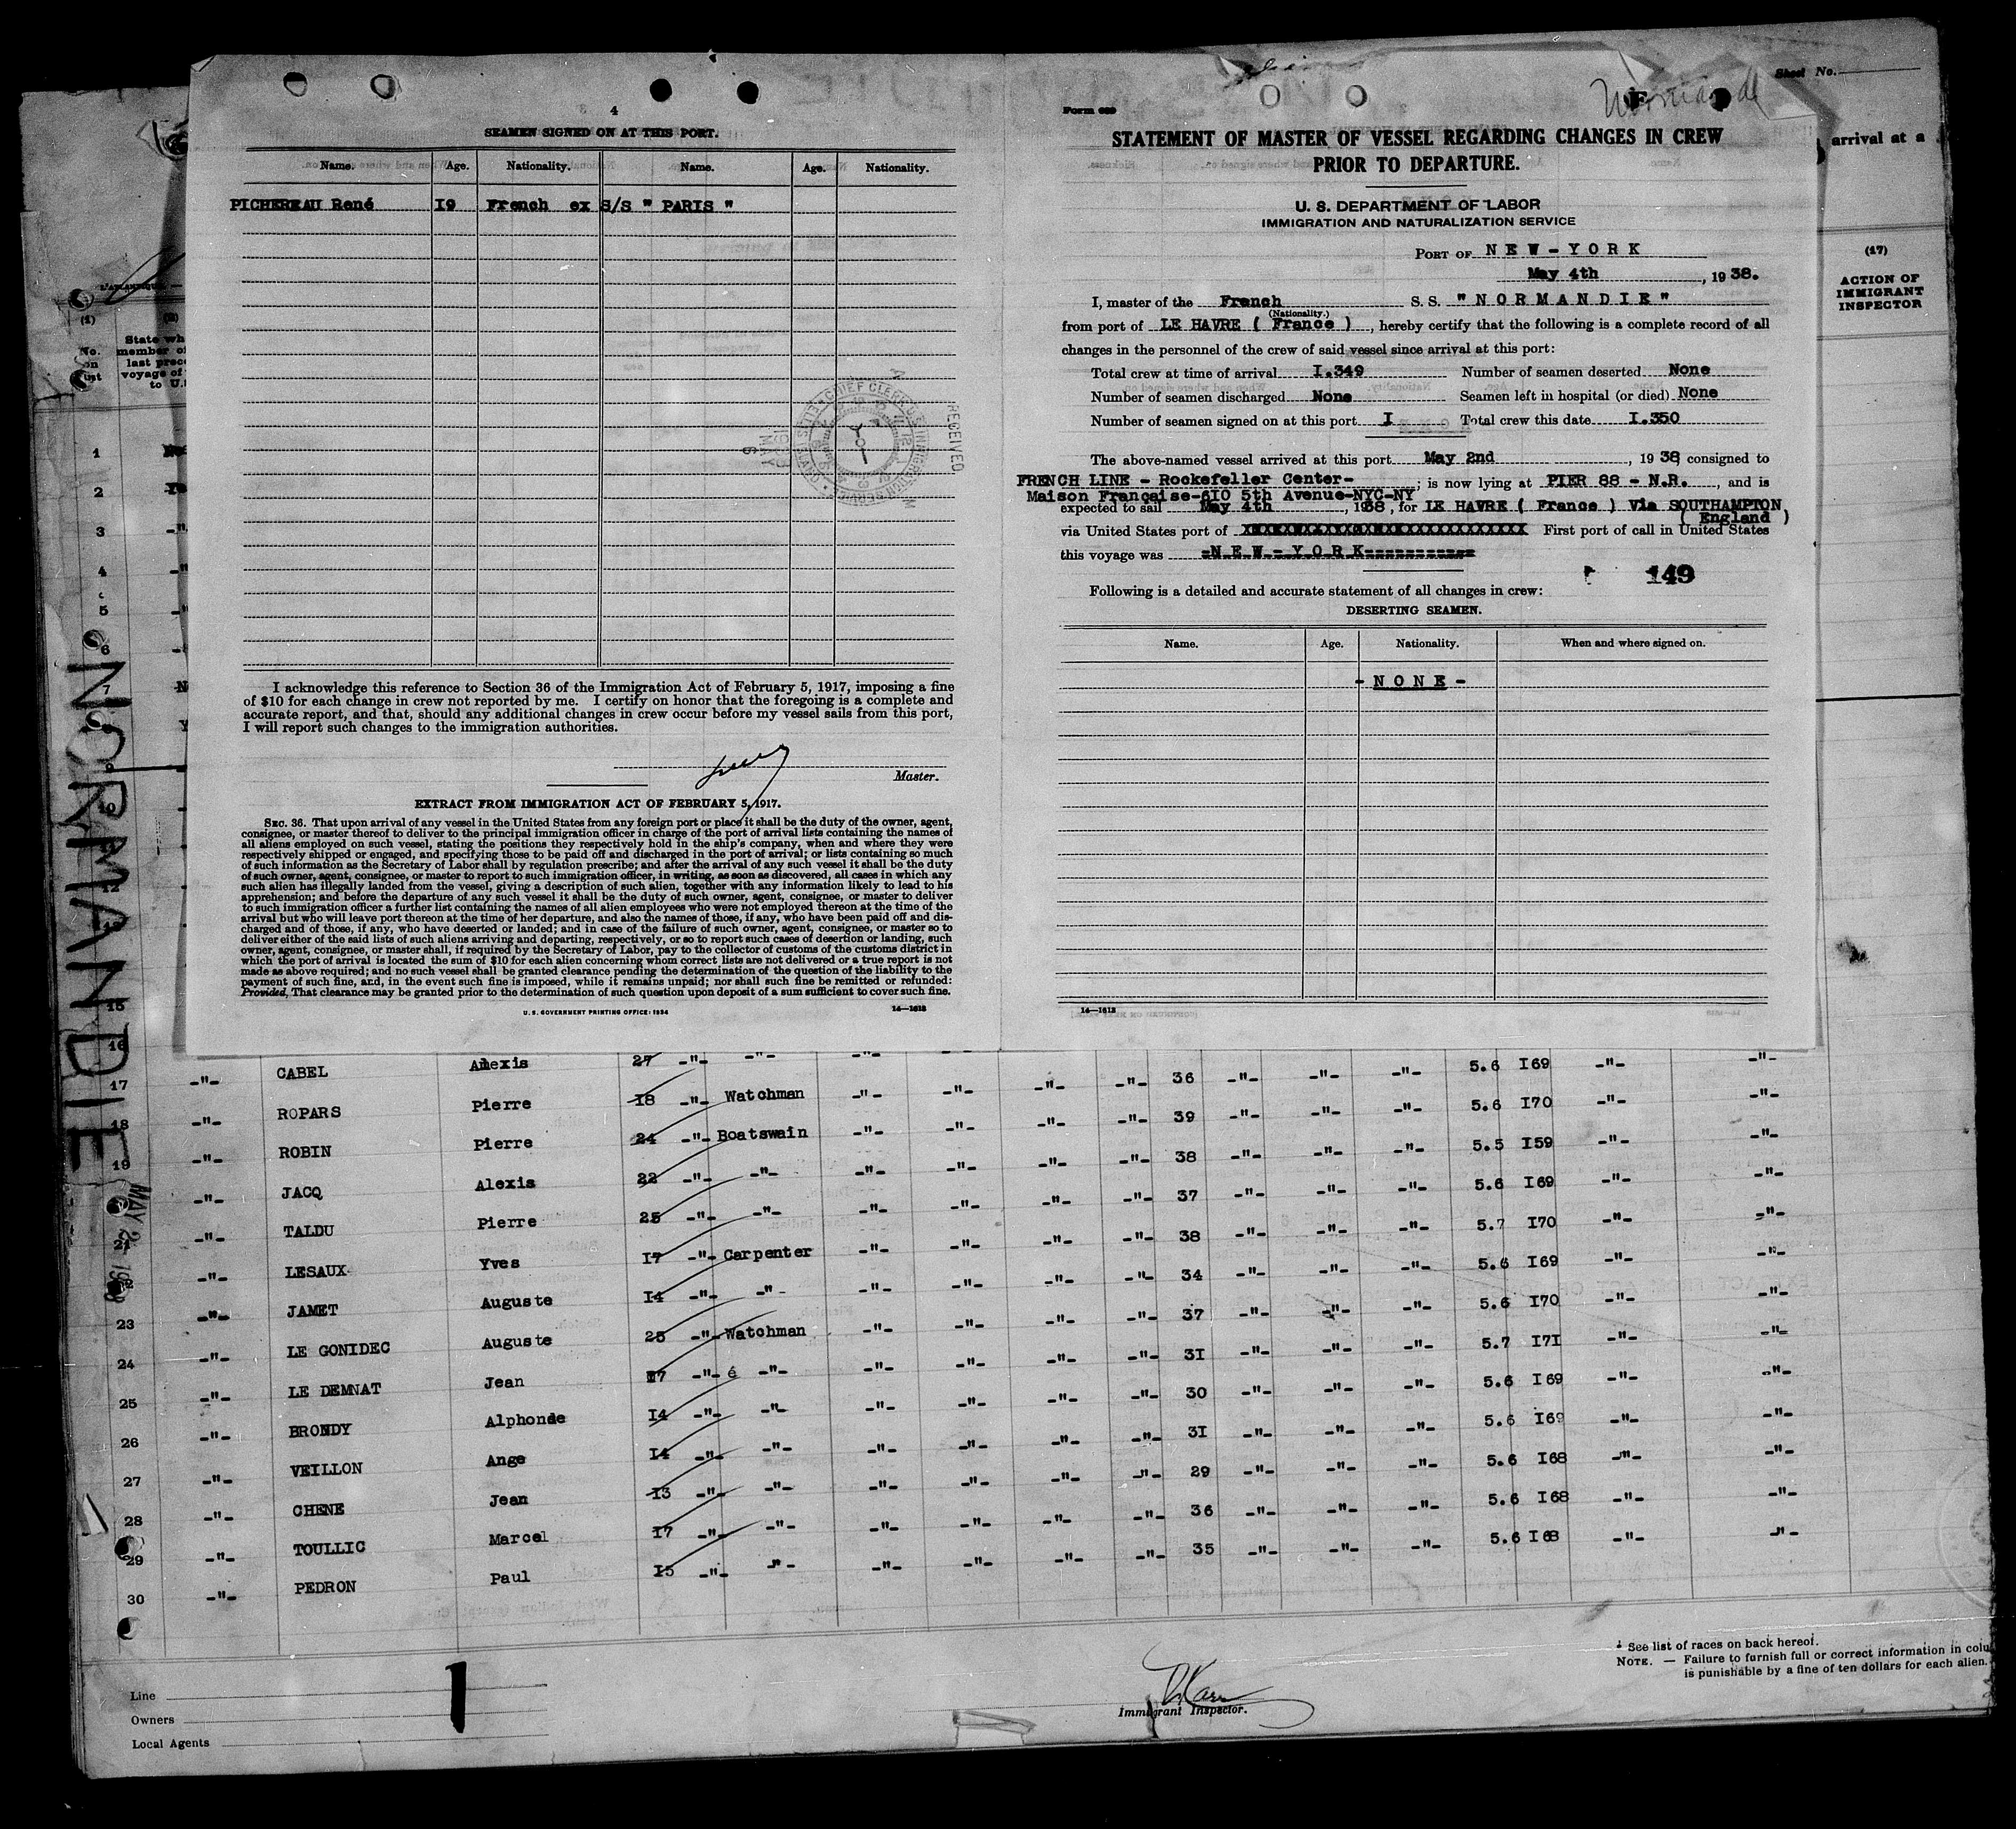 4
SEAMEN SIGNED ON AT THIS PORT.
Name. Age. Nationality. Name. Age. Nationality.
PICHEREAU René 19 French ex S/S " PARIS "
RECEIVED
MAY 6
I acknowledge this reference to Section 36 of the Immigration Act of February 5, 1917, imposing a fine
of $10 for each change in crew not reported by me. I certify on honor that the foregoing is a complete and
accurate report, and that, should any additional changes in crew occur before my vessel sails from this port,
I will report such changes to the immigration authorities.
Master.
EXTRACT FROM IMMIGRATION ACT OF FEBRUARY 5, 1917.
SEC. 36. That upon arrival of any vessel in the United States from any foreign port or place it shall be the duty of the owner, agent,
consignee, or master thereof to deliver to the principal immigration officer in charge of the port of arrival lists containing the names of
all aliens employed on such vessel, stating the positions they respectively hold in the ship's company, when and where they were
respectively shipped or engaged, and specifying those to be paid off and discharged in the port of arrival; or lists containing so much
of such information as the Secretary of Labor shall by regulation prescribe; and after the arrival of any such vessel it shall be the duty
of such owner, agent, consignee, or master to report to such immigration officer, in writing, as soon as discovered, all cases in which any
such alien has illegally landed from the vessel, giving a description of such alien, together with any information likely to lead to his
apprehension; and before the departure of any such vessel it shall be the duty of such owner, agent, consignee, or master to deliver
to such immigration officer a further list containing the names of all alien employees who were not employed thereon at the time of the
arrival but who will leave port thereon at the time of her departure, and also the names of those, if any, who have been paid off and dis-
charged and of those, if any, who have deserted or landed; and in case of the failure of such owner, agent, consignee, or master so to
deliver either of the said lists of such aliens arriving and departing, respectively, or so to report such cases of desertion or landing, such
owner, agent, consignee, or master shall, if required by the Secretary of Labor, pay to the collector of customs of the customs district in
which the port of arrival is located the sum of $10 for each alien concerning whom correct lists are not delivered or a true report is not
made as above required; and no such vessel shall be granted clearance pending the determination of the question of the liability to the
payment of such fine, and, in the event such fine is imposed, while it remains unpaid; nor shall such fine be remitted or refunded:
Provided, That clearance may be granted prior to the determination of such question upon deposit of a sum sufficient to cover such fine.
U. S. GOVERNMENT PRINTING OFFICE: 1934 14—1613
Form 689
Normandie
STATEMENT OF MASTER OF VESSEL REGARDING CHANGES IN CREW
PRIOR TO DEPARTURE.
U. S. DEPARTMENT OF LABOR
IMMIGRATION AND NATURALIZATION SERVICE
PORT OF NEW-YORK
May 4th, 1938.
I, master of the French S. S. "NORMANDIE"
(Nationality.)
from port of LE HAVRE ( France ), hereby certify that the following is a complete record of all
changes in the personnel of the crew of said vessel since arrival at this port:
Total crew at time of arrival I.349 Number of seamen deserted None
Number of seamen discharged None Seamen left in hospital (or died) None
Number of seamen signed on at this port I Total crew this date I.350
The above-named vessel arrived at this port May 2nd, 1938, consigned to
FRENCH LINE - Rockefeller Center-; is now lying at PIER 88 - N.R., and is
Maison Française-610 5th Avenue-NYC-NY
expected to sail May 4th, 1938, for LE HAVRE ( France ) Via SOUTHAMPTON
( England )
via United States port of First port of call in United States
this voyage was -NEW-YORK-----------
149
Following is a detailed and accurate statement of all changes in crew:
DESERTING SEAMEN.
Name. Age. Nationality. When and where signed on.
- NONE -
14—1613
Sheet No.
arrival at a
(17)
ACTION OF
IMMIGRANT
INSPECTOR
(1)
No.
on
List
State wh
member of
last prec
voyage of
to U.
NORMANDIE
MAY 2 - 1938
1
2
3
4
5
6
7
15
16
17 -"- CABEL Alexis 27 -"- -"- -"- -"- -"- -"- 36 -"- -"- -"- 5.6 I69 -"- -"-
18 -"- ROPARS Pierre 18 -"- Watchman -"- -"- -"- -"- 39 -"- -"- -"- 5.6 I70 -"- -"-
19 -"- ROBIN Pierre 24 -"- Boatswain -"- -"- -"- -"- 38 -"- -"- -"- 5.5 I59 -"- -"-
-"- JACQ Alexis 22 -"- -"- -"- -"- -"- -"- 37 -"- -"- -"- 5.6 I69 -"- -"-
21 -"- TALDU Pierre 25 -"- -"- -"- -"- -"- -"- 38 -"- -"- -"- 5.7 I70 -"- -"-
-"- LESAUX Yves I7 -"- Carpenter -"- -"- -"- -"- 34 -"- -"- -"- 5.6 I69 -"- -"-
23 -"- JAMET Auguste I4 -"- -"- -"- -"- -"- -"- 37 -"- -"- -"- 5.6 I70 -"- -"-
24 -"- LE GONIDEC Auguste 25 -"- Watchman -"- -"- -"- -"- 31 -"- -"- -"- 5.7 I7I -"- -"-
25 -"- LE DEMNAT Jean I7 -"- é -"- -"- -"- -"- -"- 30 -"- -"- -"- 5.6 I69 -"- -"-
26 -"- BRONDY Alphonde I4 -"- -"- -"- -"- -"- -"- 3I -"- -"- -"- 5.6 I69 -"- -"-
27 -"- VEILLON Ange I4 -"- -"- -"- -"- -"- -"- 29 -"- -"- -"- 5.6 I68 -"- -"-
28 -"- CHENE Jean I3 -"- -"- -"- -"- -"- -"- 36 -"- -"- -"- 5.6 I68 -"- -"-
29 -"- TOULLIC Marcel I7 -"- -"- -"- -"- -"- -"- 35 -"- -"- -"- 5.6 I68 -"- -"-
30 -"- PEDRON Paul I5 -"- -"- -"- -"- -"- -"-
Line
Owners
Local Agents
1
Immigrant Inspector.
¹ See list of races on back hereof.
NOTE. — Failure to furnish full or correct information in colu
is punishable by a fine of ten dollars for each alien.